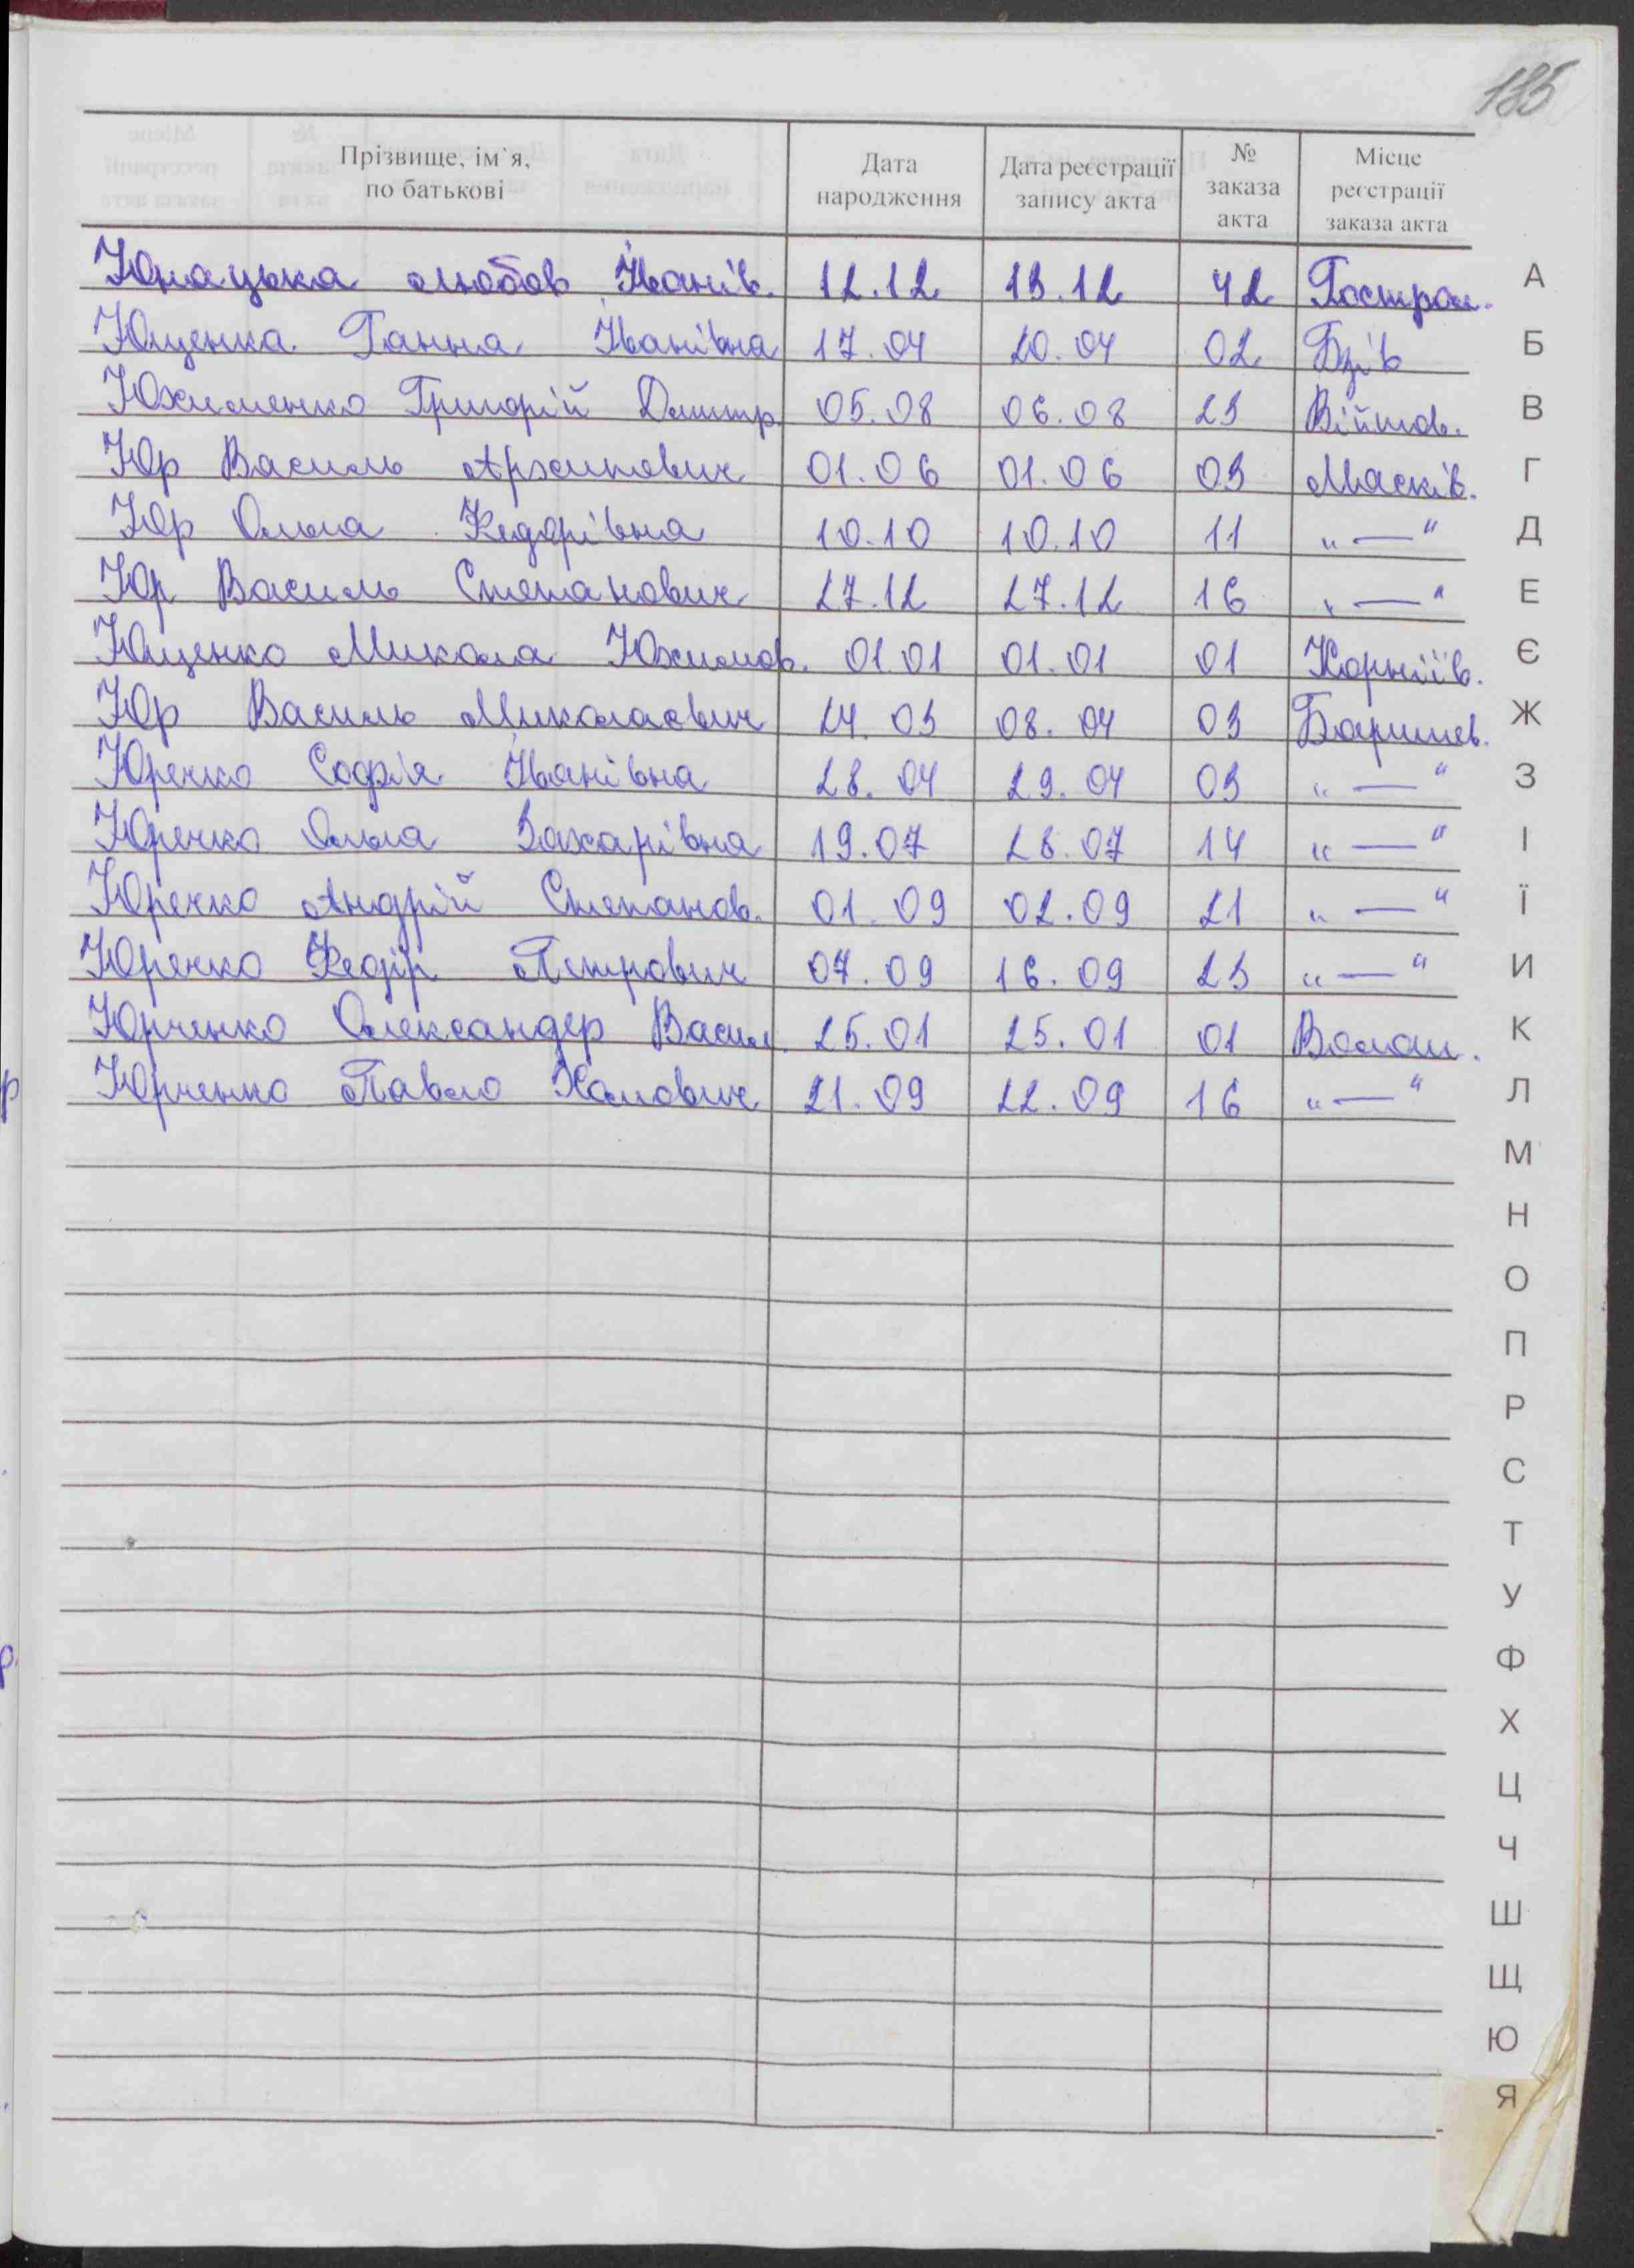 135
Прізвище, ім`я, по батькові Дата народження Дата реєстрації запису акта № заказа акта Місце реєстрації заказа акта
Юнацька Любов Іванів. 12.12 13.12 42 Гостром.
Ющенка Ганна Іванівна 17.04 20.04 02 Бзів
Юхименко Григорій Дмитр. 05.08 06.08 23 Війтов.
Юр Василь Архипович 01.06 01.06 03 Масків.
Юр Ольга Федорівна 10.10 10.10 11 „ — "
Юр Василь Степанович 27.12 27.12 16 „ — "
Ющенко Микола Юхимов. 01.01 01.01 01 Корніїв.
Юр Василь Миколаєвич 24.03 08.04 03 Баришев.
Юречко Софія Іванівна 28.04 29.04 03 „ — "
Юречко Ольга Захарівна 19.07 28.07 14 „ — "
Юречко Андрій Степанов. 01.09 02.09 21 „ — "
Юречко Федір Петрович 07.09 16.09 23 „ — "
Юрченко Олександер Васил. 25.01 25.01 01 Волош.
Юрченко Павло Хомович 21.09 22.09 16 „ — "
А
Б
В
Г
Д
Е
Є
Ж
З
І
Ї
И
К
Л
М
Н
О
П
Р
С
Т
У
Ф
Х
Ц
Ч
Ш
Щ
Ю
Я